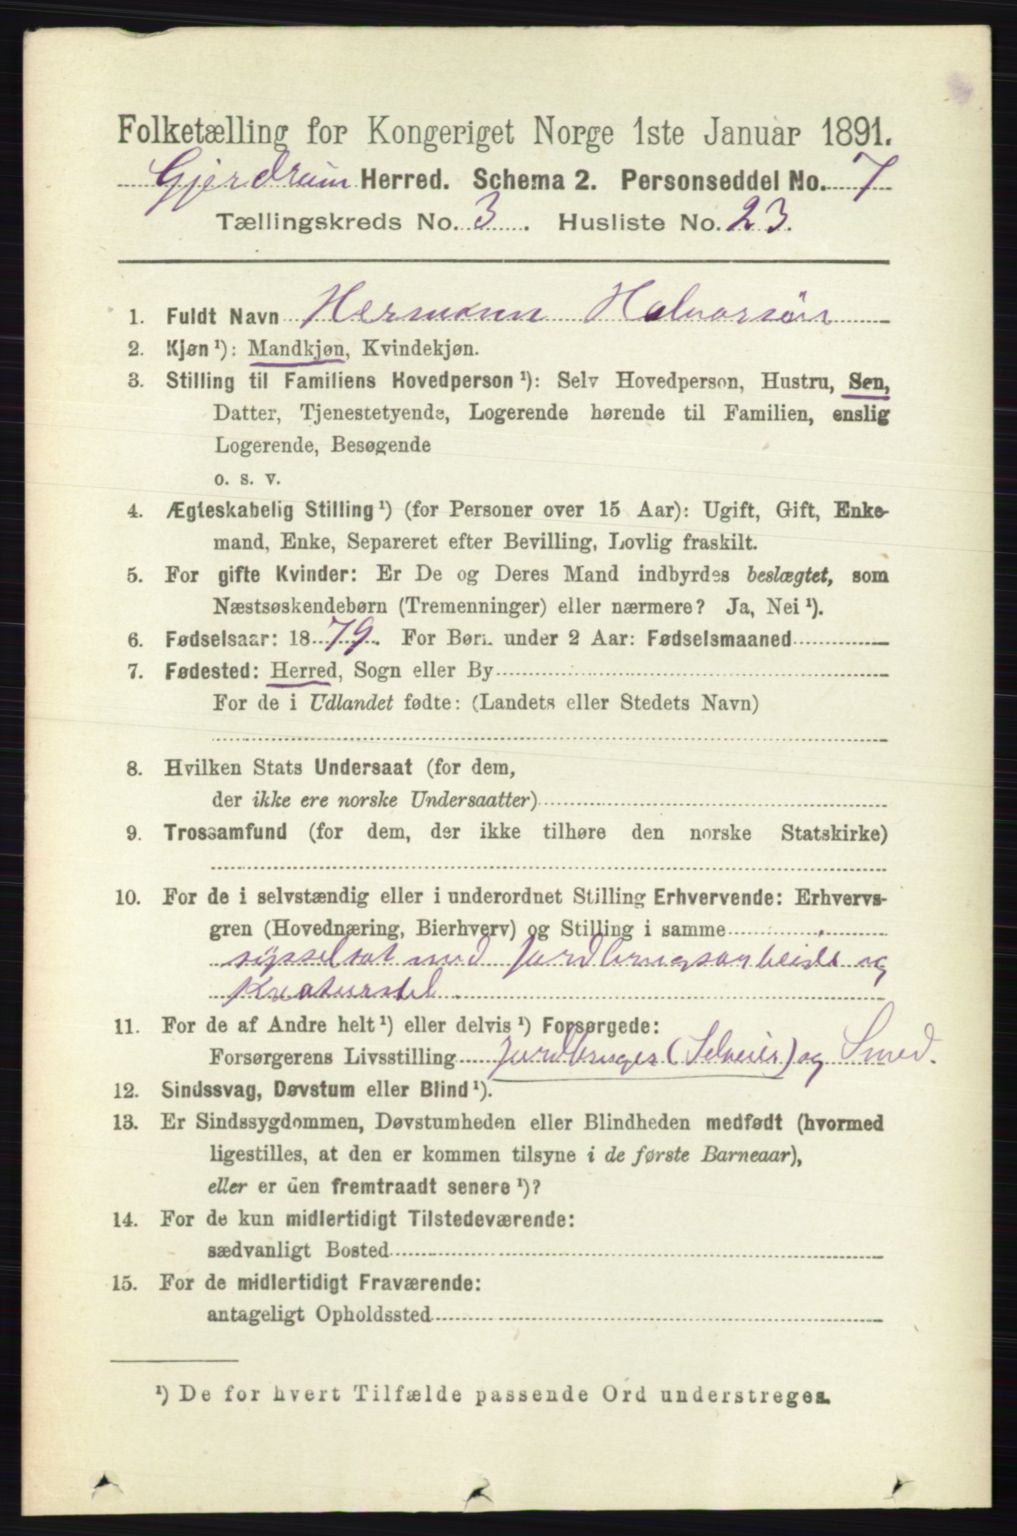 Folketælling for Kongeriget Norge 1ste Januar 1891.
Gjerdrum Herred. Schema 2. Personseddel No. 7
Tællingskreds No. 3. Husliste No. 23.
1. Fuldt Navn Hermann Halvorsøn
2. Kjøn ¹): Mandkjøn, Kvindekjøn.
3. Stilling til Familiens Hovedperson ¹): Selv Hovedperson, Hustru, Søn,
Datter, Tjenestetyende, Logerende hørende til Familien, enslig
Logerende, Besøgende
o. s. v.
4. Ægteskabelig Stilling ¹) (for Personer over 15 Aar): Ugift, Gift, Enke-
mand, Enke, Separeret efter Bevilling, Lovlig fraskilt.
5. For gifte Kvinder: Er De og Deres Mand indbyrdes beslægtet, som
Næstsøskendebørn (Tremenninger) eller nærmere? Ja, Nei ¹).
6. Fødselsaar: 1879. For Børn under 2 Aar: Fødselsmaaned
7. Fødested: Herred, Sogn eller By
For de i Udlandet fødte: (Landets eller Stedets Navn)
8. Hvilken Stats Undersaat (for dem,
der ikke ere norske Undersaatter)
9. Trossamfund (for dem, der ikke tilhøre den norske Statskirke)
10. For de i selvstændig eller i underordnet Stilling Erhvervende: Erhvervs-
gren (Hovednæring, Bierhverv) og Stilling i samme
sysselsat med Jordbrugsarbeide og
Kreaturstel.
11. For de af Andre helt ¹) eller delvis ¹) Forsørgede:
Forsørgerens Livsstilling Jordbruger (Selveier) og Smed.
12. Sindssvag, Døvstum eller Blind ¹).
13. Er Sindssygdommen, Døvstumheden eller Blindheden medfødt (hvormed
ligestilles, at den er kommen tilsyne i de første Barneaar),
eller er den fremtraadt senere ¹)?
14. For de kun midlertidigt Tilstedeværende:
sædvanligt Bosted
15. For de midlertidigt Fraværende:
antageligt Opholdssted
¹) De for hvert Tilfælde passende Ord understreges.